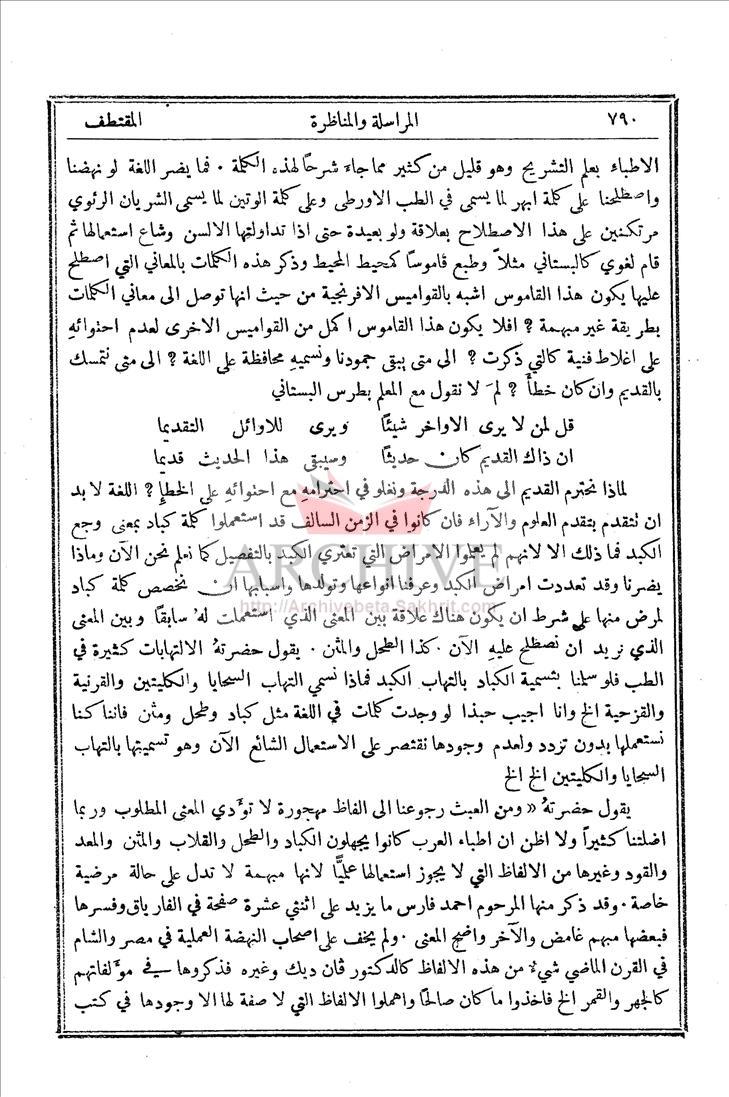 ٧٩٠ المراسلة والمناظرة المقتطف
الاطباء بعلم التشريح وهو قليل من كثير مما جاء شرحًا لهذه الكلمة . فما يضر اللغة لو نهضنا
واصطلحنا على كلمة ابهر لما يسمى في الطب الاورطى وعلى كلمة الوتين لما يسمى الشريان الرئوي
مرتكنين على هذا الاصطلاح بعلاقة ولو بعيدة حتى اذا تداولتها الالسن وشاع استعمالها ثم
قام لغوي كالبستاني مثلاً وطبع قاموسًا كمحيط المحيط وذكر هذه الكلمات بالمعاني التي اصطلح
عليها يكون هذا القاموس اشبه بالقواميس الافرنجية من حيث انها توصل الى معاني الكلمات
بطريقة غير مبهمة ? افلا يكون هذا القاموس اكمل من القواميس الاخرى لعدم احتوائهِ
على اغلاط فنية كالتي ذكرت ? الى متى يبقى جمودنا ونسميهِ محافظة على اللغة ? الى متى نتمسك
بالقديم وان كان خطأً ? لمَ لا نقول مع المعلم بطرس البستاني
قل لمن لا يرى الاواخر شيئًا ويرى للاوائل التقديما
ان ذاك القديم كان حديثًا وسيبقى هذا الحديث قديما
لماذا نحترم القديم الى هذه الدرجة ونغلو في احترامهِ مع احتوائهِ على الخطإِ ? اللغة لا بد
ان نتقدم بتقدم العلوم والآراء فان كانوا في الزمن السالف قد استعملوا كلمة كباد بمعنى وجع
الكبد فما ذلك الا لانهم لم يعلموا الامراض التي تعتري الكبد بالتفصيل كما نعلم نحن الآن وماذا
يضرنا وقد تعددت امراض الكبد وعرفنا انواعها وتولدها واسبابها ان نخصص كلمة كباد
لمرض منها على شرط ان يكون هناك علاقة بين المعنى الذي استعملت لهُ سابقًا وبين المعنى
الذي نريد ان نصطلح عليهِ الآن . كذا الطحل والمثن . يقول حضرتهُ الالتهابات كثيرة في
الطب فلو سلمنا بتسمية الكباد بالتهاب الكبد فماذا نسمي التهاب السحايا والكليتين والقرنية
والقزحية الخ وانا اجيب حبذا لو وجدت كلمات في اللغة مثل كباد وطحل ومثن فاننا كنا
نستعملها بدون تردد ولعدم وجودها نقتصر على الاستعمال الشائع الآن وهو تسميتها بالتهاب
السحايا والكليتين الخ الخ
يقول حضرتهُ « ومن العبث رجوعنا الى الفاظ مهجورة لا توءدي المعنى المطلوب وربما
اضلتنا كثيراً ولا اظن ان اطباء العرب كانوا يجهلون الكباد والطحل والقلاب والمثن والمعد
والقود وغيرها من الالفاظ التي لا يجوز استعمالها عليًّا لانها مبهمة لا تدل على حالة مرضية
خاصة . وقد ذكر منها المرحوم احمد فارس ما يزيد على اثنتي عشرة صفحة في الفارياق وفسرها
فبعضها مبهم غامض والآخر واضح المعنى . ولم يخف على اصحاب النهضة العملية في مصر والشام
في القرن الماضي شيءٌ من هذه الالفاظ كالدكتور ڤان ديك وغيره فذكروها في موءلفاتهم
كالجهر والقمر الخ فاخذوا ما كان صالحًا واهملوا الالفاظ التي لا صفة لها الا وجودها في كتب
ARCHIVE
http://Archivebeta.Sakhrit.com